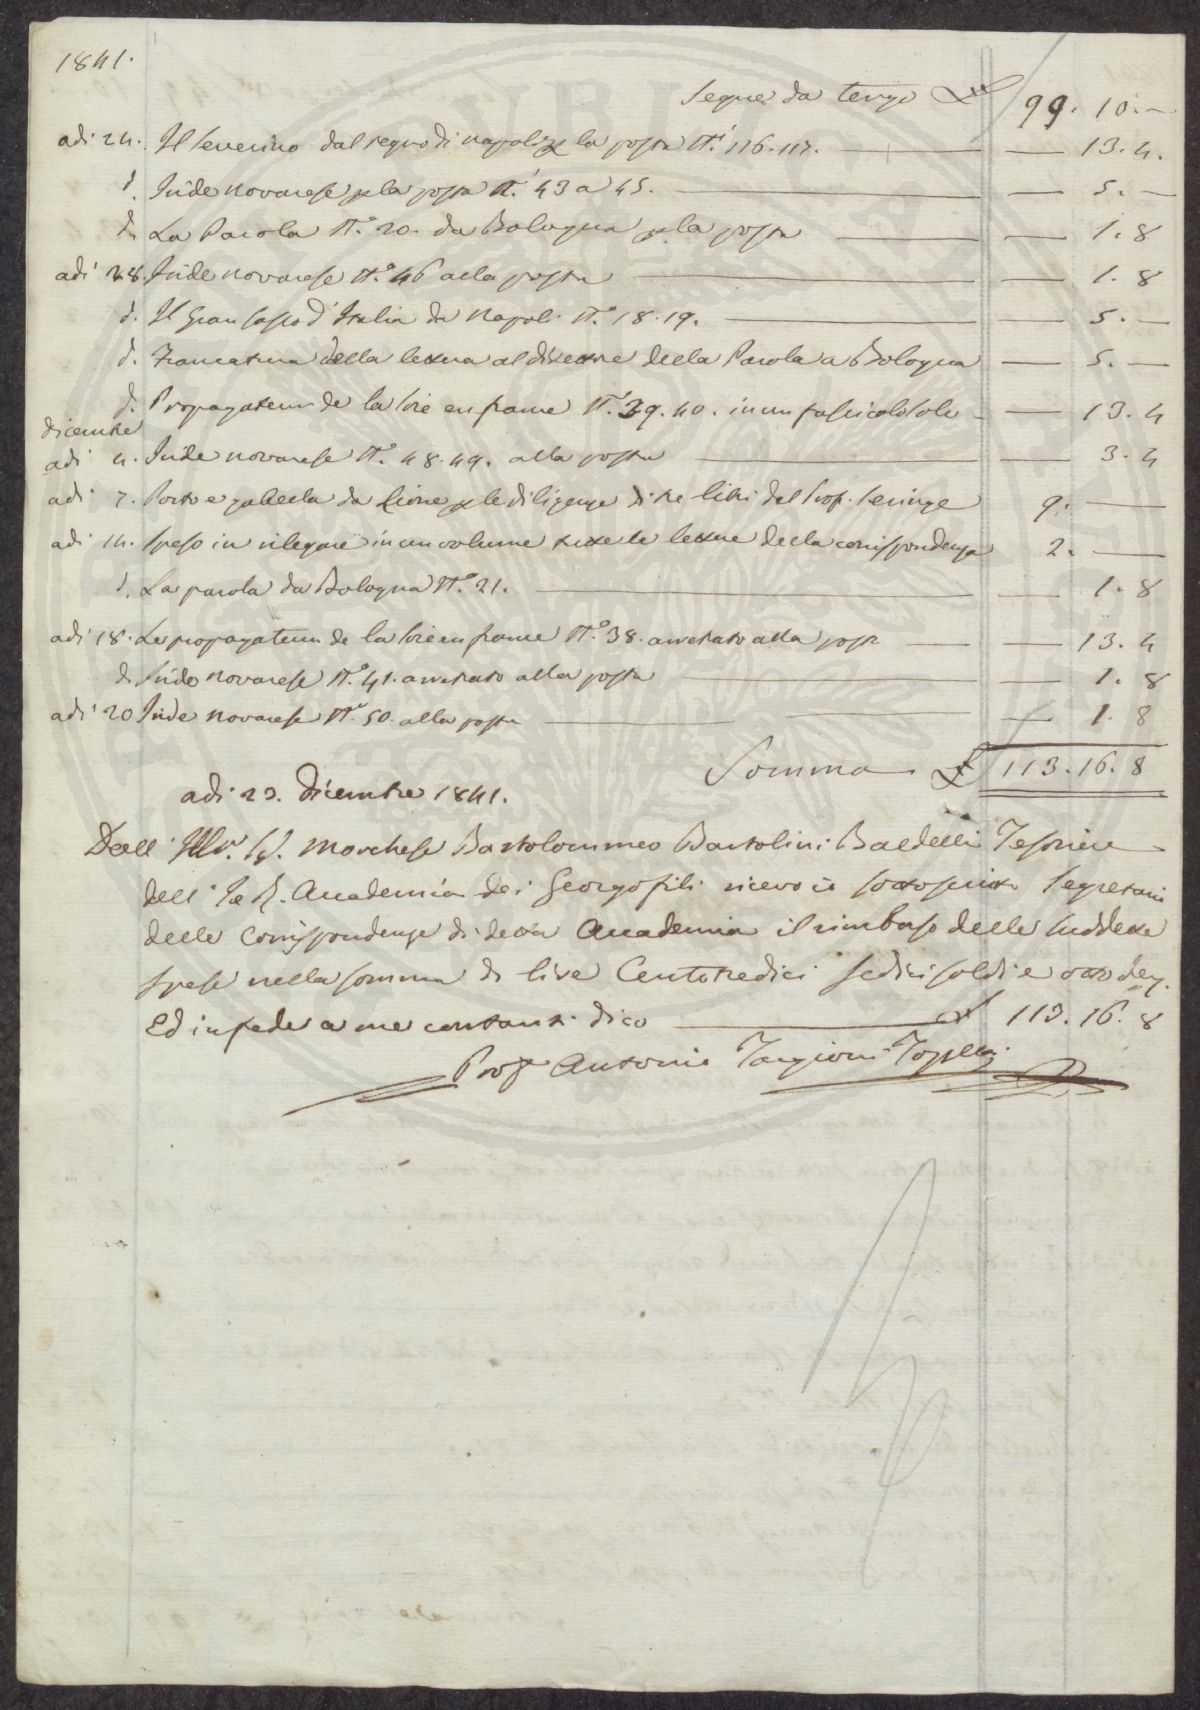 1841.
Segue da tergo £ 99. 10. —
adi 24. Il Severino dal regno di Napoli p la posta N.i 116. 117. — 13. 4.
d. Iride Novarese p la posta N.i 43 a 45. — 5. —
d. La Parola N.o 20. da Bologna p la posta — 1. 8
adi 28. Iride Novarese N.o 46 alla posta — 1. 8
d. Il Gran Sasso d'Italia da Napoli N.o 18. 19. — 5. —
d. Francatura della lettera al direttore della Parola a Bologna — 5. —
d. Propagateur de la soie en france N.i 39. 40. in un fascicolo solo — 13. 4
dicembre
adi 4. Iride novarese N.o 48. 49. alla posta — 3. 4
adi 7. Porto e gabella da Lione p le diligenze di tre libri del Prof. Seringe 9. —
adi 14. Speso in rilegare in un volume tutte le lettere della corrispondenza 2. —
d. La parola da Bologna N.o 21. — 1. 8
adi 18. Le propagateur de la soie en france N.o 38. arretrato alla posta — 13. 4
d. Iride Novarese N.o 41. arretrato alla posta — 1. 8
adi 20 Iride Novarese N.o 50. alla posta — 1. 8
Somma £ 113. 16. 8
adi 23. Dicembre 1841.
Dall' Illr. Sr. Marchese Bartolommeo Bartolini Baldelli Tesoriere
dell' I e R. Accademia dei Georgofili ricevo io sottoscritto Segretario
delle Corrispondenze di detta Accademia il rimborso delle suddette
spese nella somma di lire Centotredici sedici soldi e otto den.
Ed in fede a me contanti dico — £ 113. 16. 8
Prof Antonio Targioni Tozzetti